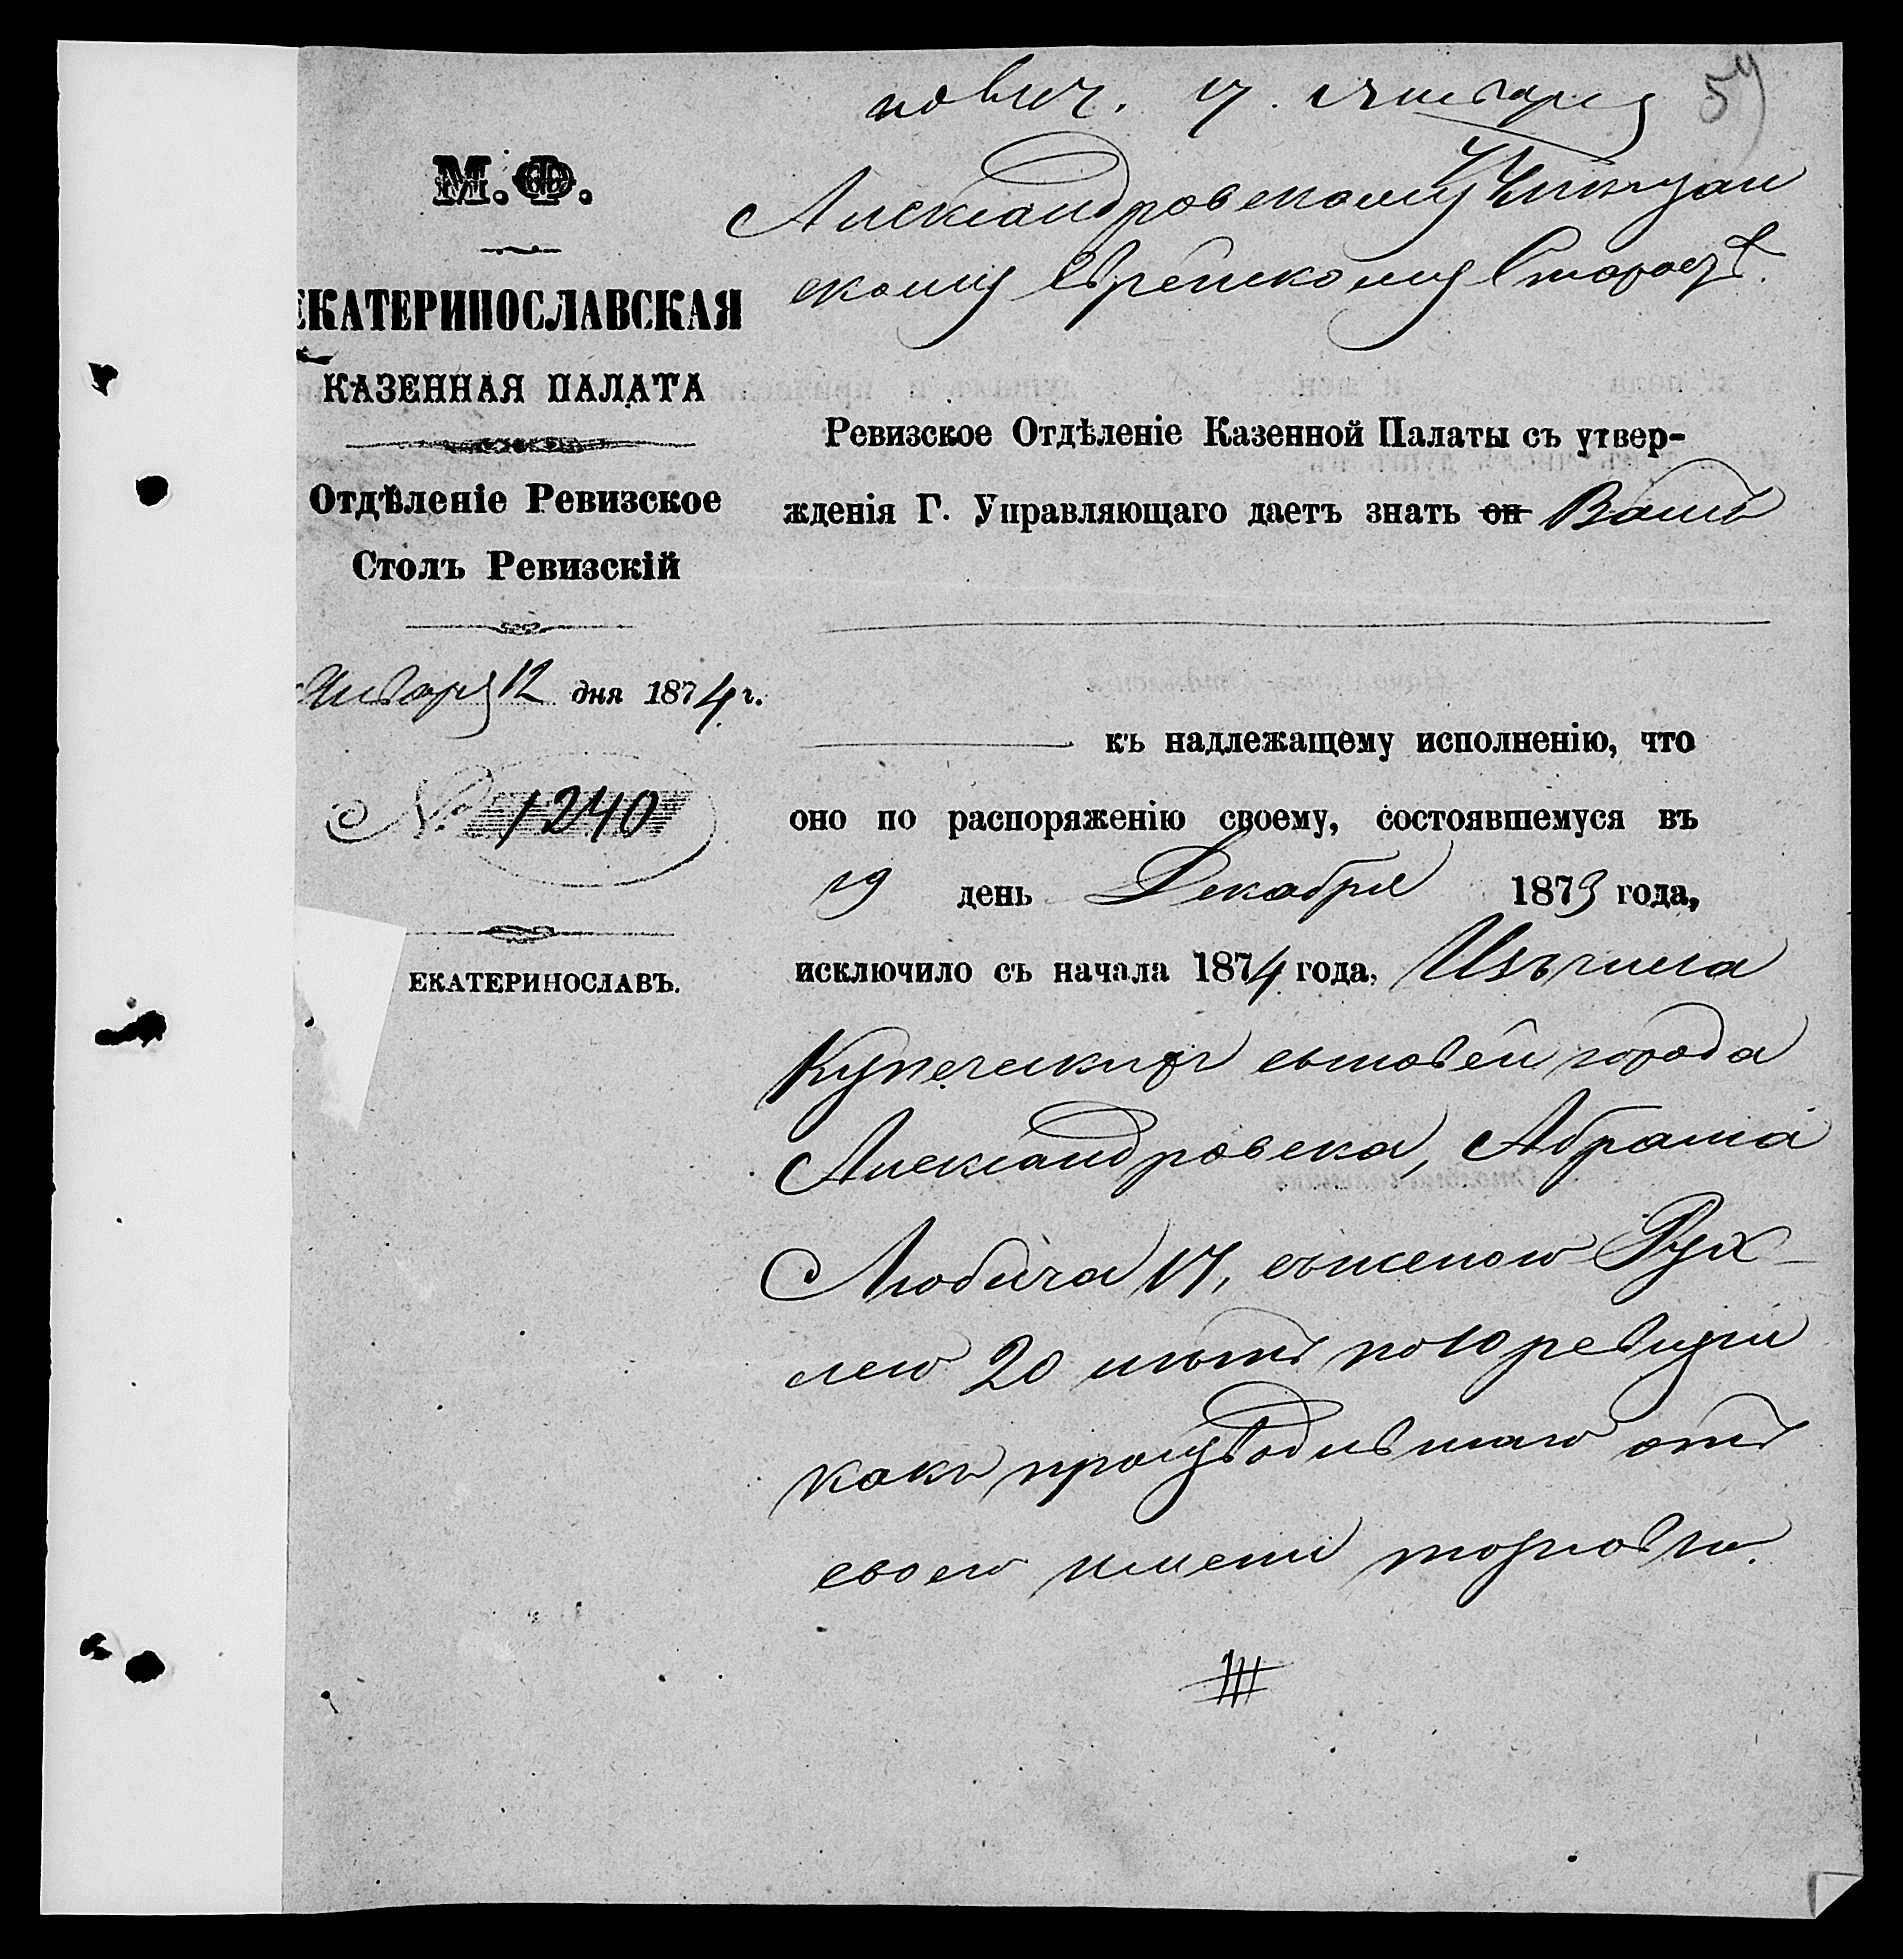 59
получ. 17. Января
М. Ф.
ЕКАТЕРИНОСЛАВСКАЯ
КАЗЕННАЯ ПАЛАТА
Отдѣленіе Ревизское
Столъ Ревизскій
Января 12 дня 1874 г.
№ 1240
ЕКАТЕРИНОСЛАВЪ.
Александровскому Мѣщан
скому Еврейскому Старостѣ.
Ревизское Отдѣленіе Казенной Палаты съ утвер-
жденія Г. Управляющаго даетъ знать он Вамъ
къ надлежащему исполненію, что
оно по распоряженію своему, состоявшемуся въ
19 день Декабря 1873 года,
исключило съ начала 1874 года, Изъ числа
Купеческихъ сыновей города
Александровска, Абрама
Любича 17, съ женою Рух-
лею 20 лѣтъ по 10 ревизіи
какъ производившаго отъ
своего имени торговлю.